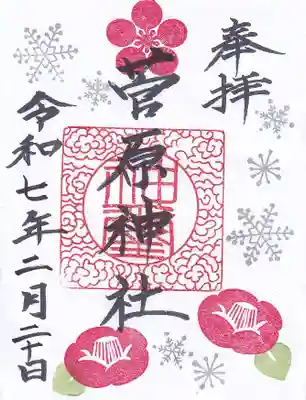 奉拝
菅原神社
令和七年二月二十日